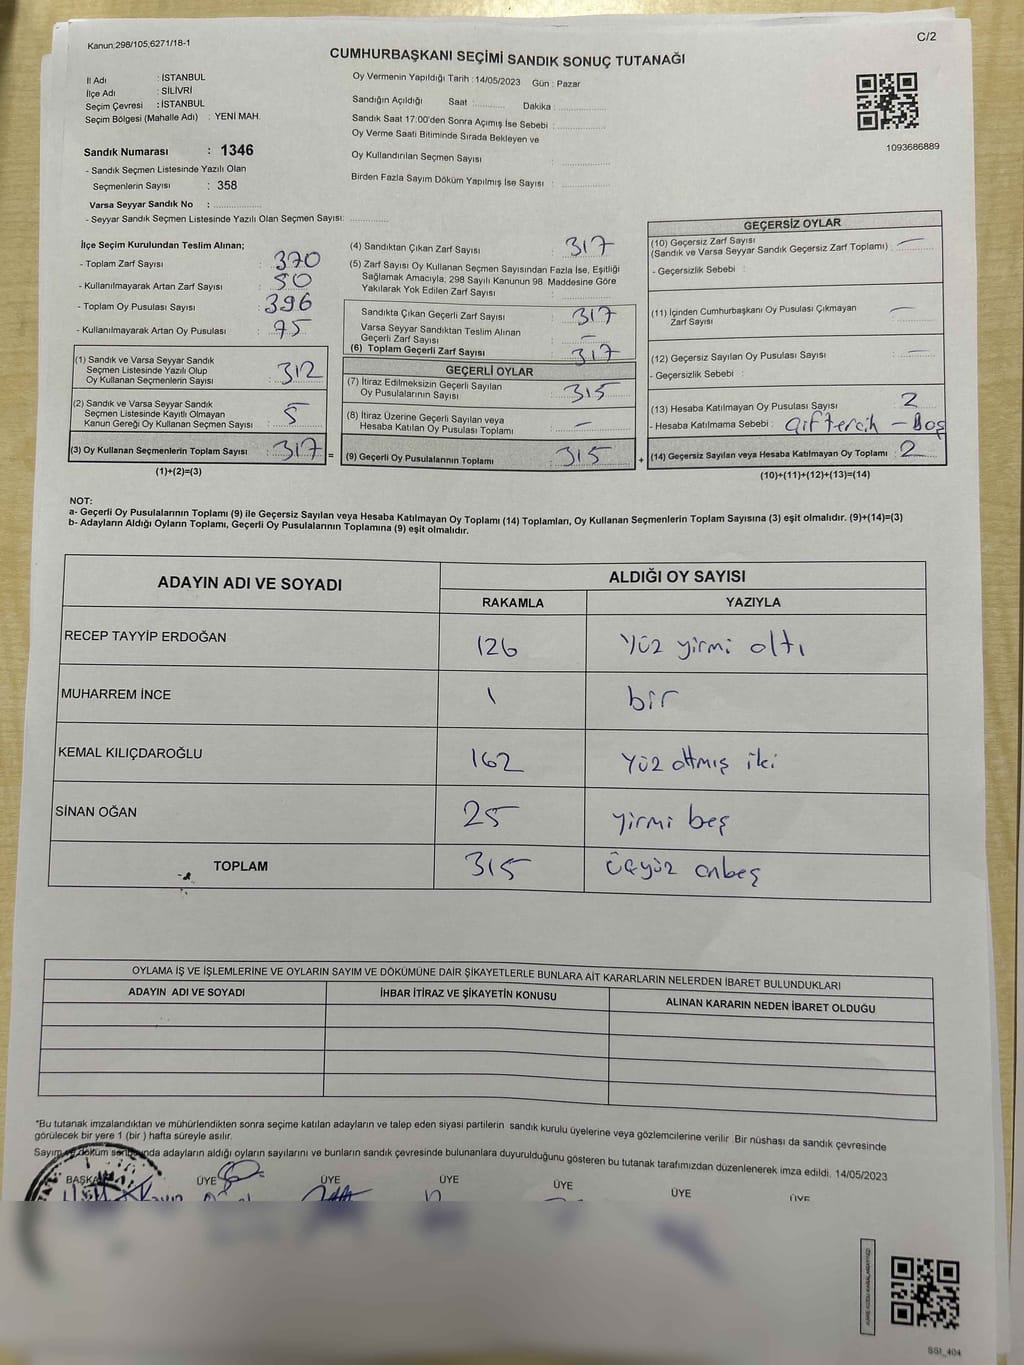 Kanun;298/105,6271/18-1
C/2
CUMHURBAŞKANI SEÇİMİ SANDIK SONUÇ TUTANAĞI
İl Adı : İSTANBUL
İlçe Adı : SİLİVRİ
Seçim Çevresi : İSTANBUL
Seçim Bölgesi (Mahalle Adı) : YENİ MAH.
Sandık Numarası : 1346
- Sandık Seçmen Listesinde Yazılı Olan
Seçmenlerin Sayısı : 358
Varsa Seyyar Sandık No :
- Seyyar Sandık Seçmen Listesinde Yazılı Olan Seçmen Sayısı:
Oy Vermenin Yapıldığı Tarih : 14/05/2023 Gün : Pazar
Sandığın Açıldığı Saat : Dakika :
Sandık Saat 17:00'den Sonra Açımış İse Sebebi :
Oy Verme Saati Bitiminde Sırada Bekleyen ve
Oy Kullandırılan Seçmen Sayısı :
Birden Fazla Sayım Döküm Yapılmış İse Sayısı :
1093686889
İlçe Seçim Kurulundan Teslim Alınan;
- Toplam Zarf Sayısı : 370
- Kullanılmayarak Artan Zarf Sayısı : 50
- Toplam Oy Pusulası Sayısı : 396
- Kullanılmayarak Artan Oy Pusulası : 75
(1) Sandık ve Varsa Seyyar Sandık
Seçmen Listesinde Yazılı Olup
Oy Kullanan Seçmenlerin Sayısı : 312
(2) Sandık ve Varsa Seyyar Sandık
Seçmen Listesinde Kayıtlı Olmayan
Kanun Gereği Oy Kullanan Seçmen Sayısı : 5
(3) Oy Kullanan Seçmenlerin Toplam Sayısı : 317 =
(1)+(2)=(3)
(4) Sandıktan Çıkan Zarf Sayısı : 317
(5) Zarf Sayısı Oy Kullanan Seçmen Sayısından Fazla İse, Eşitliği
Sağlamak Amacıyla, 298 Sayılı Kanunun 98. Maddesine Göre
Yakılarak Yok Edilen Zarf Sayısı :
Sandıkta Çıkan Geçerli Zarf Sayısı : 317
Varsa Seyyar Sandıktan Teslim Alınan
Geçerli Zarf Sayısı : —
(6) Toplam Geçerli Zarf Sayısı : 317
GEÇERLİ OYLAR
(7) İtiraz Edilmeksizin Geçerli Sayılan
Oy Pusulalarının Sayısı : 315
(8) İtiraz Üzerine Geçerli Sayılan veya
Hesaba Katılan Oy Pusulası Toplamı : —
(9) Geçerli Oy Pusulalarının Toplamı : 315 +
GEÇERSİZ OYLAR
(10) Geçersiz Zarf Sayısı : —
(Sandık ve Varsa Seyyar Sandık Geçersiz Zarf Toplamı)
- Geçersizlik Sebebi :
(11) İçinden Cumhurbaşkanı Oy Pusulası Çıkmayan
Zarf Sayısı : —
(12) Geçersiz Sayılan Oy Pusulası Sayısı : —
- Geçersizlik Sebebi :
(13) Hesaba Katılmayan Oy Pusulası Sayısı : 2
- Hesaba Katılmama Sebebi : Çift tercih - Boş
(14) Geçersiz Sayılan veya Hesaba Katılmayan Oy Toplamı : 2
(10)+(11)+(12)+(13)=(14)
NOT:
a- Geçerli Oy Pusulalarının Toplamı (9) ile Geçersiz Sayılan veya Hesaba Katılmayan Oy Toplamı (14) Toplamları, Oy Kullanan Seçmenlerin Toplam Sayısına (3) eşit olmalıdır. (9)+(14)=(3)
b- Adayların Aldığı Oyların Toplamı, Geçerli Oy Pusulalarının Toplamına (9) eşit olmalıdır.
ADAYIN ADI VE SOYADI ALDIĞI OY SAYISI
RAKAMLA YAZIYLA
RECEP TAYYİP ERDOĞAN 126 Yüz yirmi altı
MUHARREM İNCE 1 bir
KEMAL KILIÇDAROĞLU 162 Yüz altmış iki
SİNAN OĞAN 25 yirmi beş
TOPLAM 315 üçyüz onbeş
OYLAMA İŞ VE İŞLEMLERİNE VE OYLARIN SAYIM VE DÖKÜMÜNE DAİR ŞİKAYETLERLE BUNLARA AİT KARARLARIN NELERDEN İBARET BULUNDUKLARI
ADAYIN ADI VE SOYADI İHBAR İTİRAZ VE ŞİKAYETİN KONUSU ALINAN KARARIN NEDEN İBARET OLDUĞU
*Bu tutanak imzalandıktan ve mühürlendikten sonra seçime katılan adayların ve talep eden siyasi partilerin sandık kurulu üyelerine veya gözlemcilerine verilir. Bir nüshası da sandık çevresinde
görülecek bir yere 1 (bir) hafta süreyle asılır.
Sayım ve döküm sonunda adayların aldığı oyların sayılarını ve bunların sandık çevresinde bulunanlara duyurulduğunu gösteren bu tutanak tarafımızdan düzenlenerek imza edildi. 14/05/2023
BAŞKAN ÜYE ÜYE ÜYE ÜYE ÜYE ÜYE
SSI_404